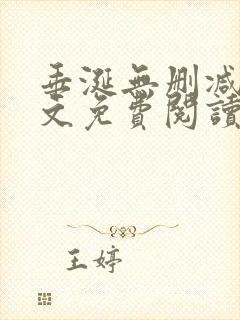 垂涎無刪減
文免費閱讀
王婷